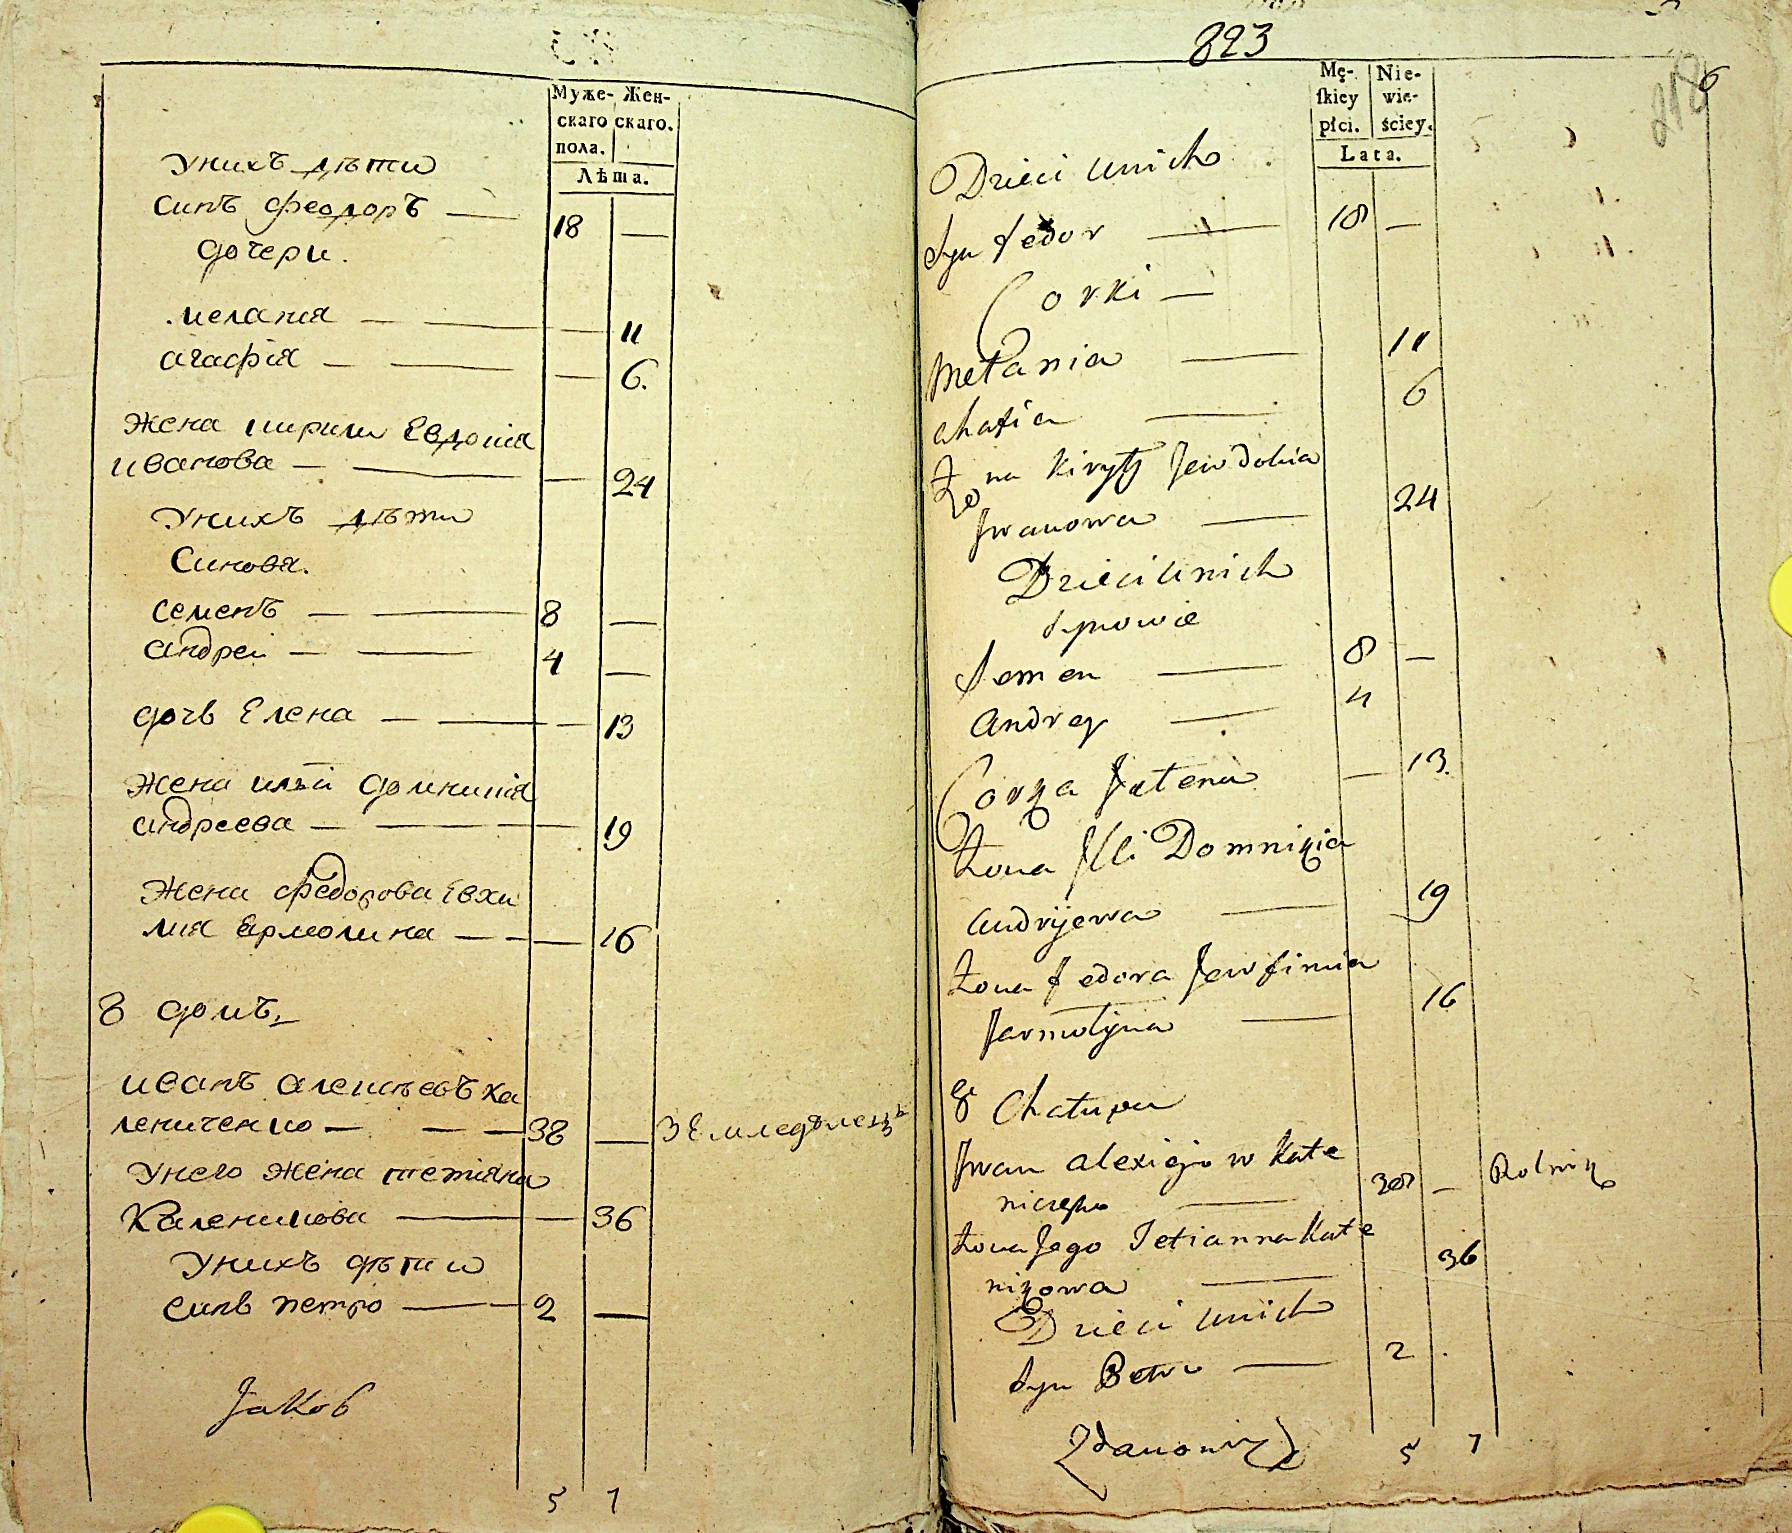 Муже- Жен-
скаго скаго.
пола.
Лѣта.
Унихъ дѣти
синъ Феодоръ — 18 —
дочери.
мелания — — — 11
агафія — — — 6.
Жена кирили Евдокія
иванова — — — 24
Унихъ дѣти
Синовя.
семенъ — — 8 —
андреи — — 4 —
дочь Елена — — — 13
Жена илѣи домникія
андреева — — — 19
Жена федорова Евхи
мия Ермолина — — — 16
8 домъ
иванъ алексѣевъ ка
лениченко — — — 38 — Землѣделецъ
Унего жена тетіяна
Каленикова — — 36
Унихъ дѣти
синъ петро — — 2 —
Jakob
5 7
823
218
6
Mę- Nie-
skiey wie-
płci. ściey.
Lata.
Dzieci unich
Syn Fedor — 18 —
Corki —
Mełania — 11
ahafia — 6
Żona Kiryły Jewdokia
Jwanowa — 24
Dzieci unich
Synowie
Semen — 8 —
Andrey — 4
Corka Jełena — 13.
Żona Jlli Domnikia
Andrijewa — 19
Żona Fedora Jewfimia
Jarmołyna — 16
8 Chałupa
Jwan Alexiejow Kałe
niczenko — 38 — Rolnik
Żona Jego Tetianna Kałe
nikowa — 36
Dzieci unich
Syn Petro — 2 .
Zdanowicz
5 7